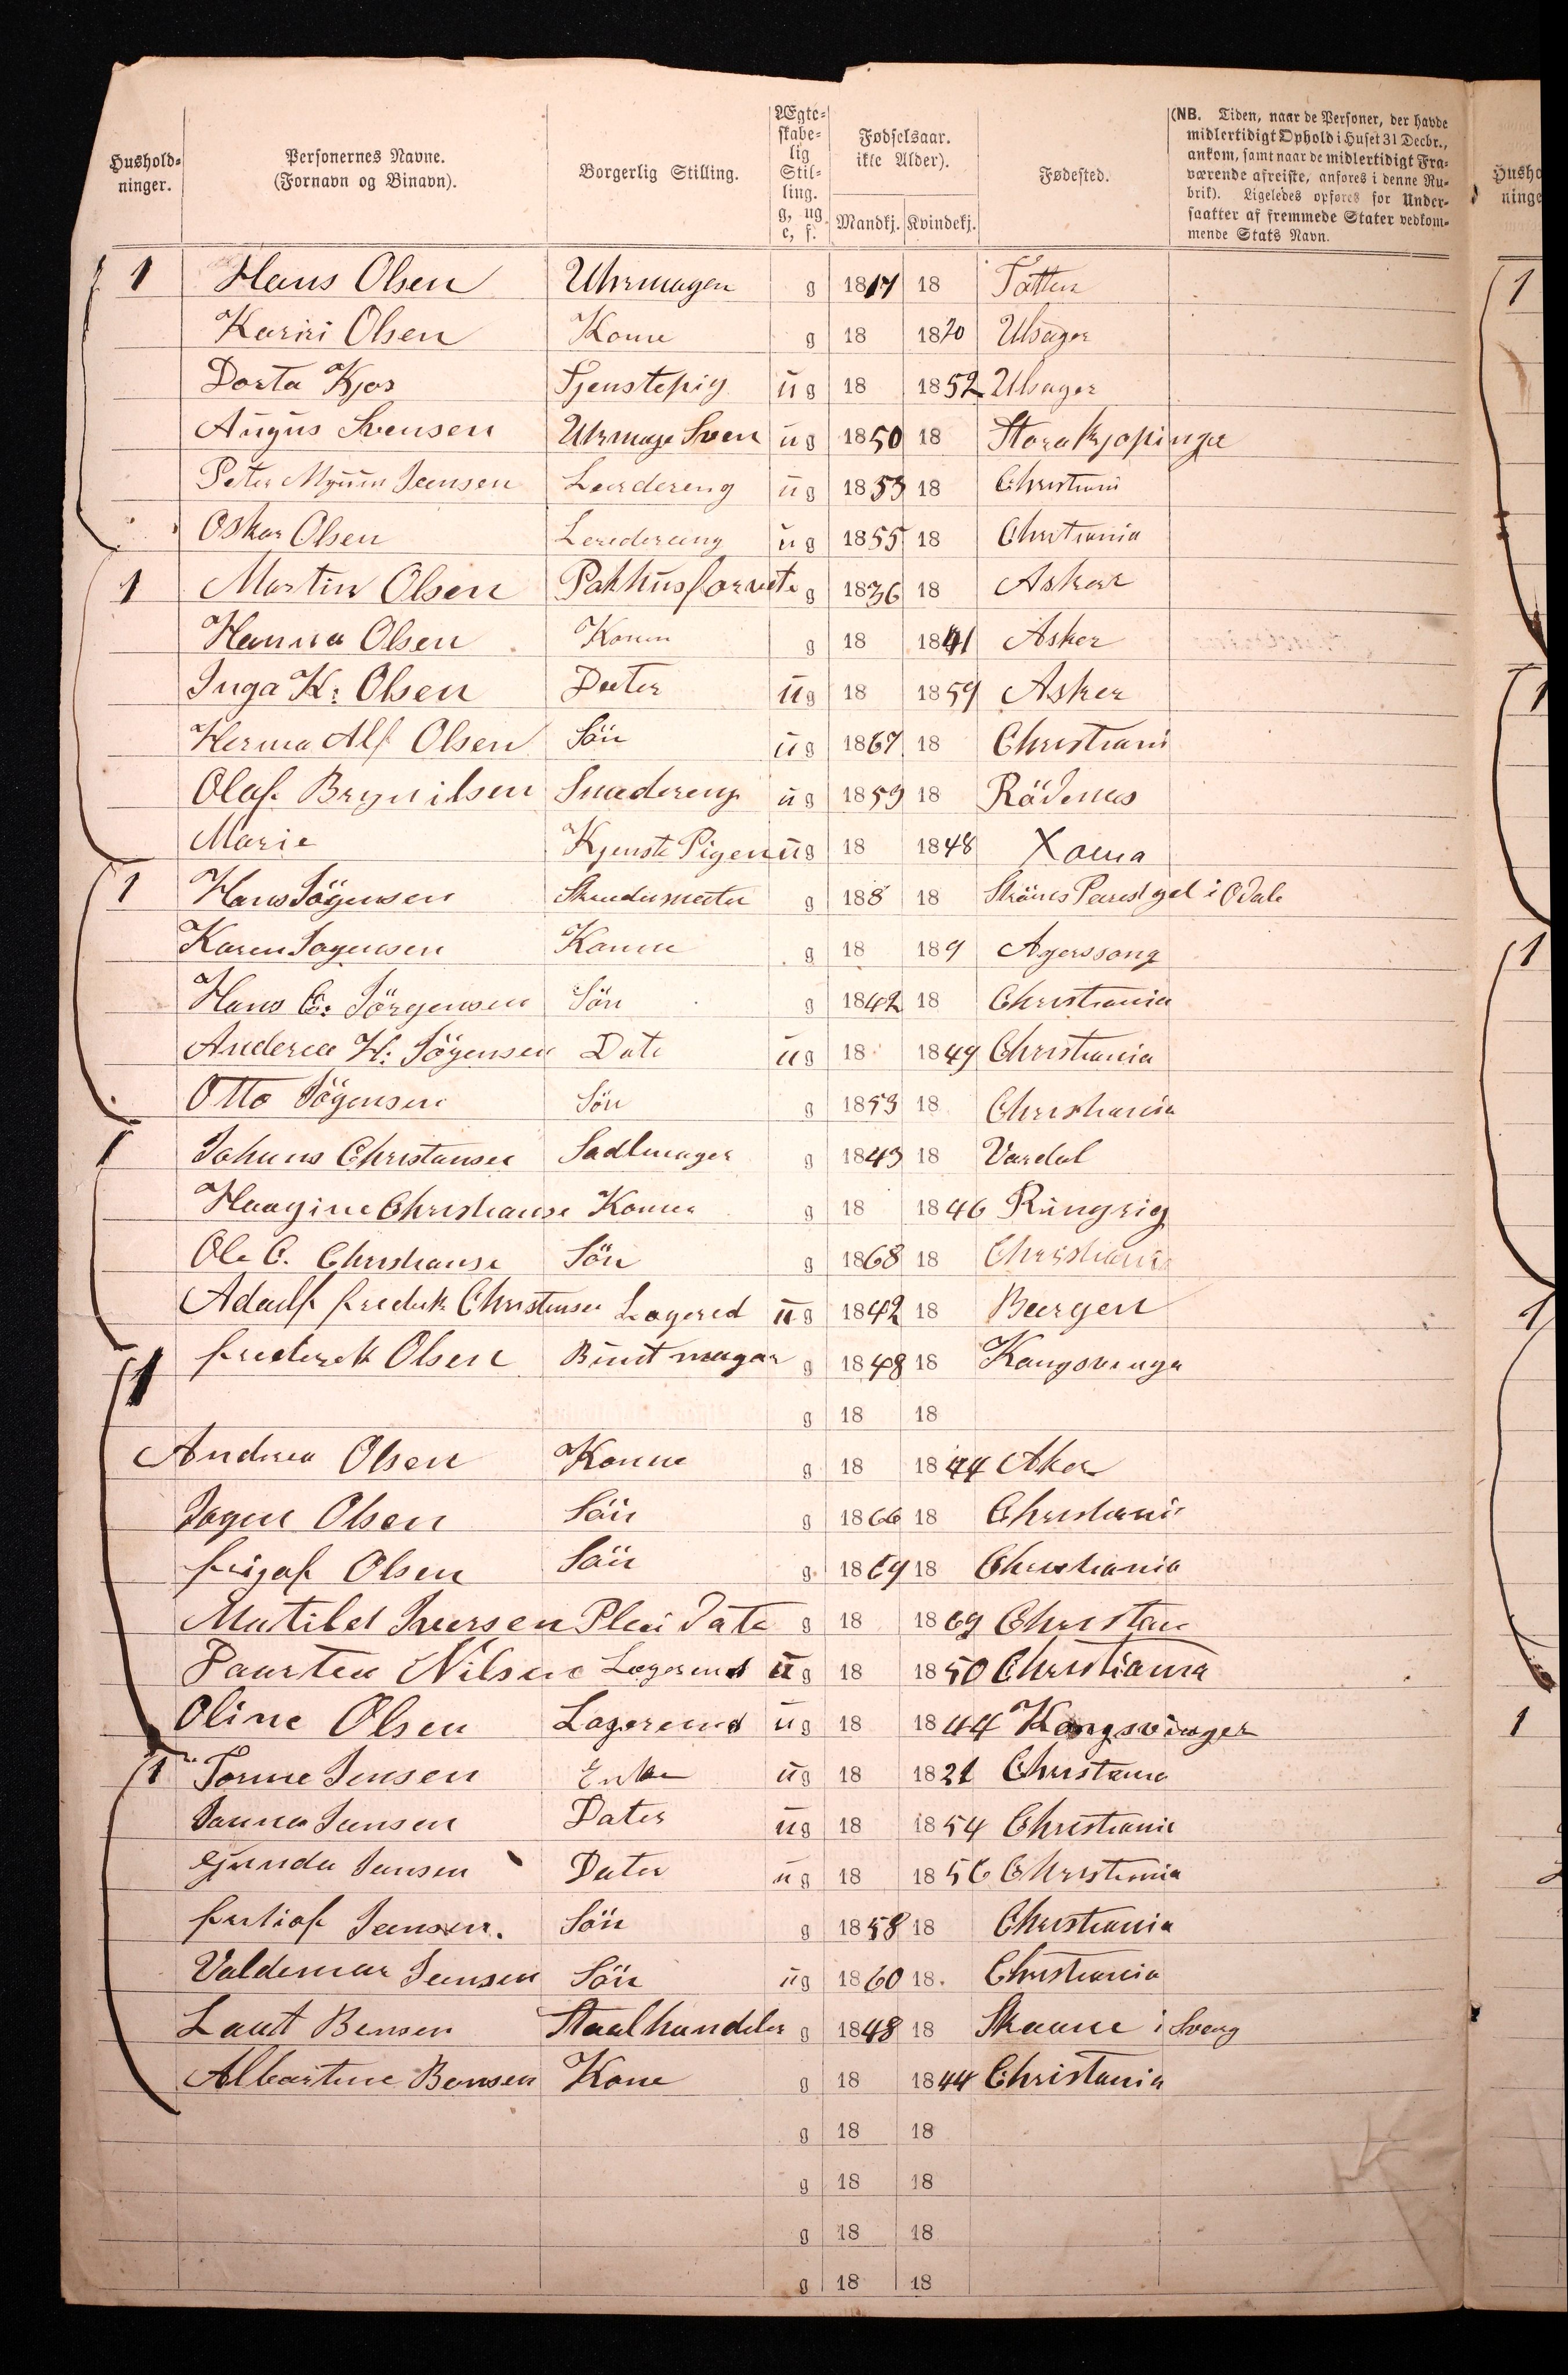 Hushold-ninger. Personernes Navne. (Fornavn og Binavn). Borgerlig Stilling. Ægte-skabe-lig Stil-ling. g, ug. e, f. Fødselsaar. ikke Alder). Mandkj. Kvindekj. Fødested. (NB. Tiden, naar de Personer, der havde midlertidigt Ophold i Huset 31 Decbr., ankom, samt naar de midlertidigt Fra-værende afreiste, anføres i denne Ru-brik). Ligeledes opføres for Under-saatter af fremmede Stater vedkom-mende Stats Navn.
1 Hans Olsen Uhrmagen g 1817 18 Tatten
Kariri Olsen Kone g 18 1820 Ulsager
Dorta Kjos Tjenstepig ug 18 1852 Ulsager
Augus Svensen Uhrmage Sven ug 1850 18 Storakjopinge
Peter Jensen ug 1853 18 Christiani
Oskar Olsen ug 1855 18 Christiania
1 Martin Olsen Pakhusforvete g 1836 18 Asker
Hanna Olsen Konen g 18 1841 Asker
Inga K: Olsen Dater ug 18 1859 Asker
Herma Alf Olsen Sön ug 1867 18 Christiani
Olaf Brynilsen ug 1859 18 Rödenes
Marie Kjenste Pigen ug 18 1848
1 Hans Sögensen g 188 18 i Odale
Karen Sogensen Konne g 18 189 Agerssong
Hans C: Sörgensen Sön g 1842 18 Christiania
Anderea H: Sögensen Date ug 18 1849 Christiania
Otto Sögensen Sön g 1853 18 Christiania
1 Johans Christansen Sadlmager g 1843 18 Vardal
Haagine Christianse Konne g 18 1846 Ringrig
Ole C. Christianse Sön g 1868 18 Christiania
Adaulf fredrik Christensen Logered ug 1842 18 Bergen
1 frederek Olsen Buntmagar g 1848 18 Kangsvinga
g 18 18
Andrea Olsen Konne g 18 1844 Aker
Jogen Olsen Sön g 1866 18 Christiania
frijof Olsen Sön g 1869 18 Christiania
Matild Iversen Plei Date g 18 1869 Christan
Nilsen Logerend ug 18 1850 Christiania
Oline Olsen Logerend ug 18 1844 Kongsvinger
1 Jensen Enke ug 18 1821 Christania
Janna Jensen Dater ug 18 1854 Christiania
Gjunda Jensen Dater ug 18 1856 Christiania
fretiof Jensen. Sön g 1858 18 Christiania
Valdemar Jensen Sön ug 1860 18 Christiania
Bensen Staalhandeler g 1848 18 Skaane i Sverg
Albertine Bensen Kone g 18 1844 Christania
g 18 18
g 18 18
g 18 18
g 18 18